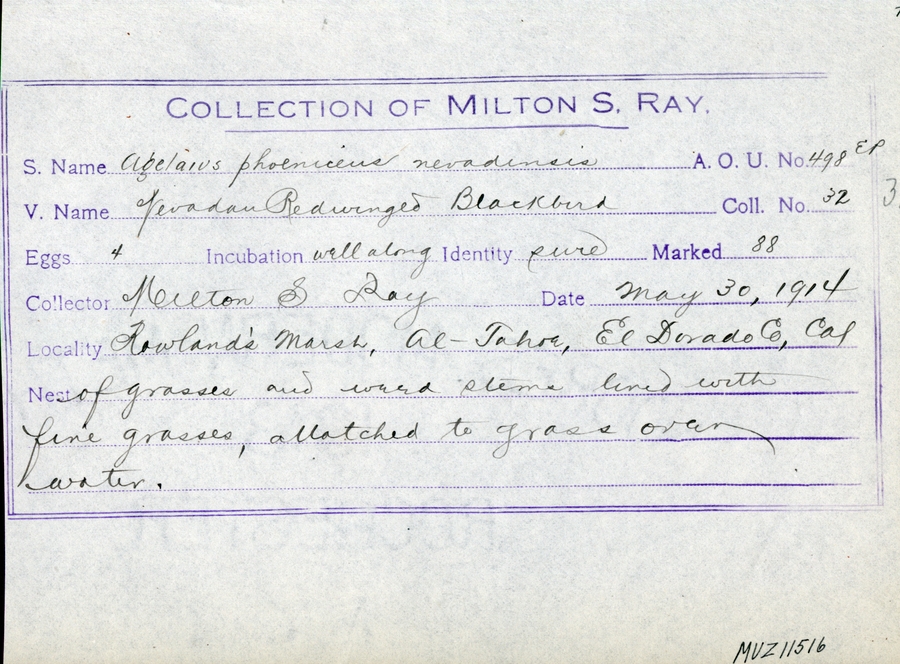 COLLECTION OF MILTON S. RAY.
S. Name Agelaius phoeniceus nevadensis A. O. U. No. 498 EP
V. Name Nevadan Redwinged Blackbird Coll. No. 32
Eggs 4 Incubation well along Identity sure Marked 88
Collector Milton S Ray Date May 30, 1914
Locality Rowland's Marsh, Al-Tahoe, El Dorado Co, Cal
Nest of grasses and weed stems lined with
fine grasses, attatched to grass over
water.
MVZ 11516